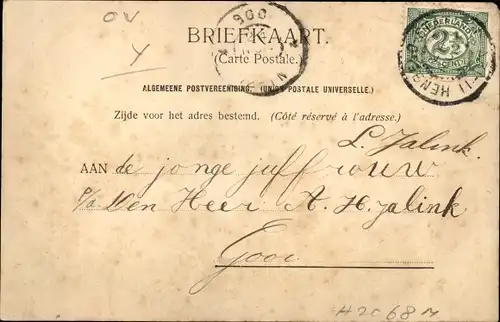 OV
Y
900
BRIEFKAART.
(Carte Postale.)
NEDERLAND
2½
CENT
HENG
ALGEMEENE POSTVEREENIGING. (UNION POSTALE UNIVERSELLE.)
Zijde voor het adres bestemd. (Côté réservé à l'adresse.)
L. Jalink.
AAN de jonge juffrouw
p/a. Den Heer A. H. Jalink
Goor
H2068M